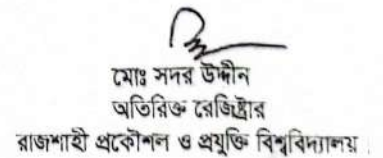 মোঃ সদর উদ্দীন
অতিরিক্ত রেজিস্ট্রার
রাজশাহী প্রকৌশল ও প্রযুক্তি বিশ্ববিদ্যালয়।